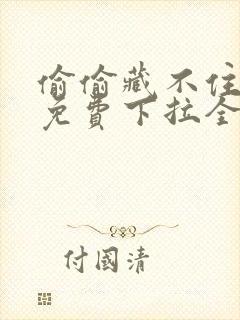 偷偷藏不住
免費下拉全
付國清